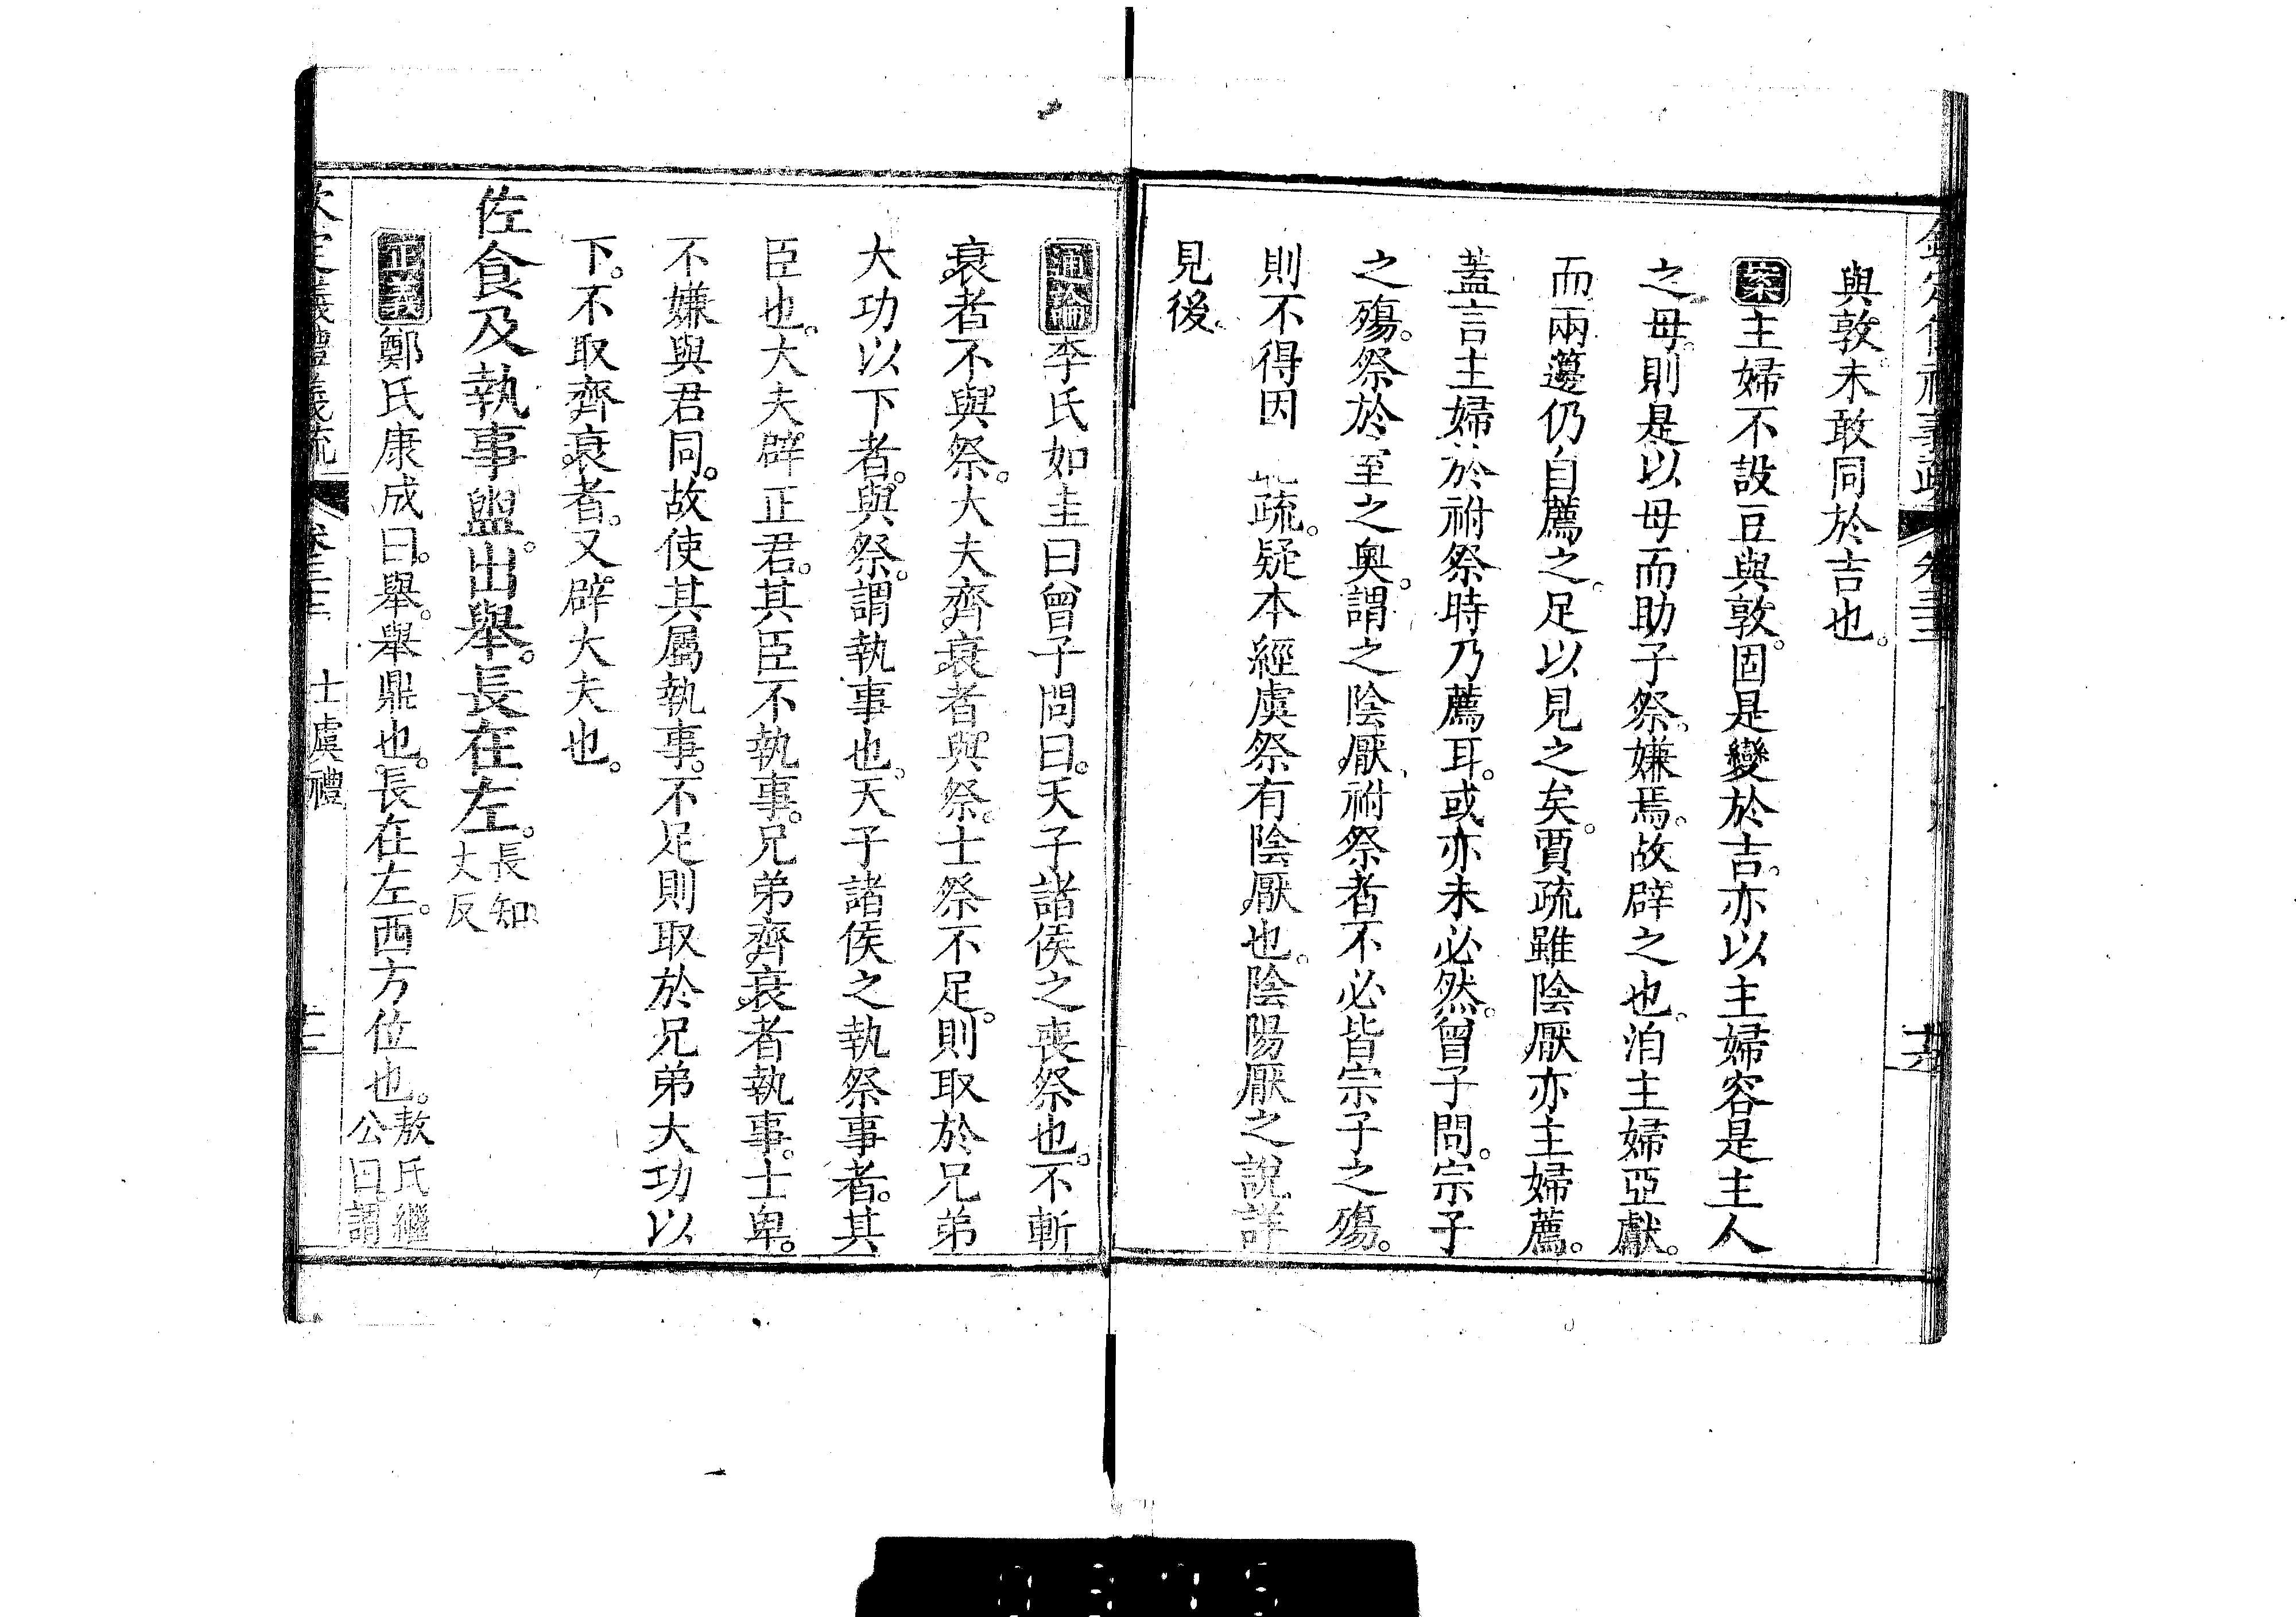 與敦。未敢同於吉也。
案主婦不設豆與敦。固是變於吉。亦以主婦容是主人
之母。則是以母而助子祭。嫌焉。故辟之也。洎主婦亞獻。
而兩籩仍自薦之。足以見之矣。賈疏雖陰厭亦主婦薦。
蓋言主婦於祔祭時乃薦耳。或亦未必然。曾子問。宗子
之殤。祭於室之奧。謂之陰厭。祔祭者不必皆宗子之殤。
則不得因 疏。疑本經虞祭有陰厭也。陰陽厭之說詳
見後。
卷三十三
通論李氏如圭曰曾子問曰。天子諸侯之喪祭也。不斬
衰者不與祭。大夫齊衰者與祭。士祭不足。則取於兄弟
大功以下者。與祭。謂執事也。天子諸侯之執祭事者。其
臣也。大夫辟正君。其臣不執事。兄弟齊衰者執事。士卑。
不嫌與君同。故使其屬執事。不足則取於兄弟大功以
下。不取齊衰者。又辟大夫也。
佐食及執事盥。出舉。長在左。長知
丈反
正義鄭氏康成曰。舉。舉鼎也。長在左。西方位也。敖氏繼
公曰。謂
欽定儀禮義疏 士虞禮